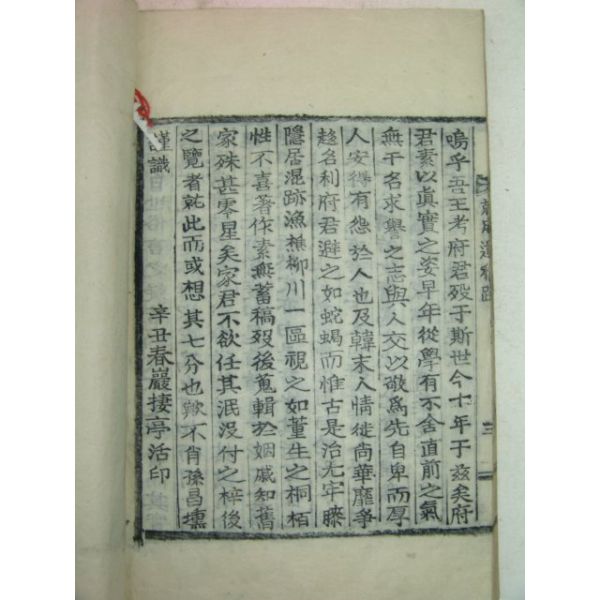 嗚乎吾王考府君歿于斯世今十年于玆矣府
君素以眞實之姿早年從學有不舍直前之氣
無干名求譽之志與人交以敬爲先自卑而厚
人安得有怨於人也及韓末人情徙尚華靡爭
趍名利府君避之如蛇蝎而惟古是治尤牢藤
隱居混跡漁樵柳川一區視之如董生之桐栢
性不喜著作素無蓄稿歿後蒐輯於姻戚知舊
家殊甚零星矣家君不欲任其泯沒付之梓後
之覽者就此而或想其七分也歟不肖孫昌壎
謹識
辛丑春巖棲亭活印